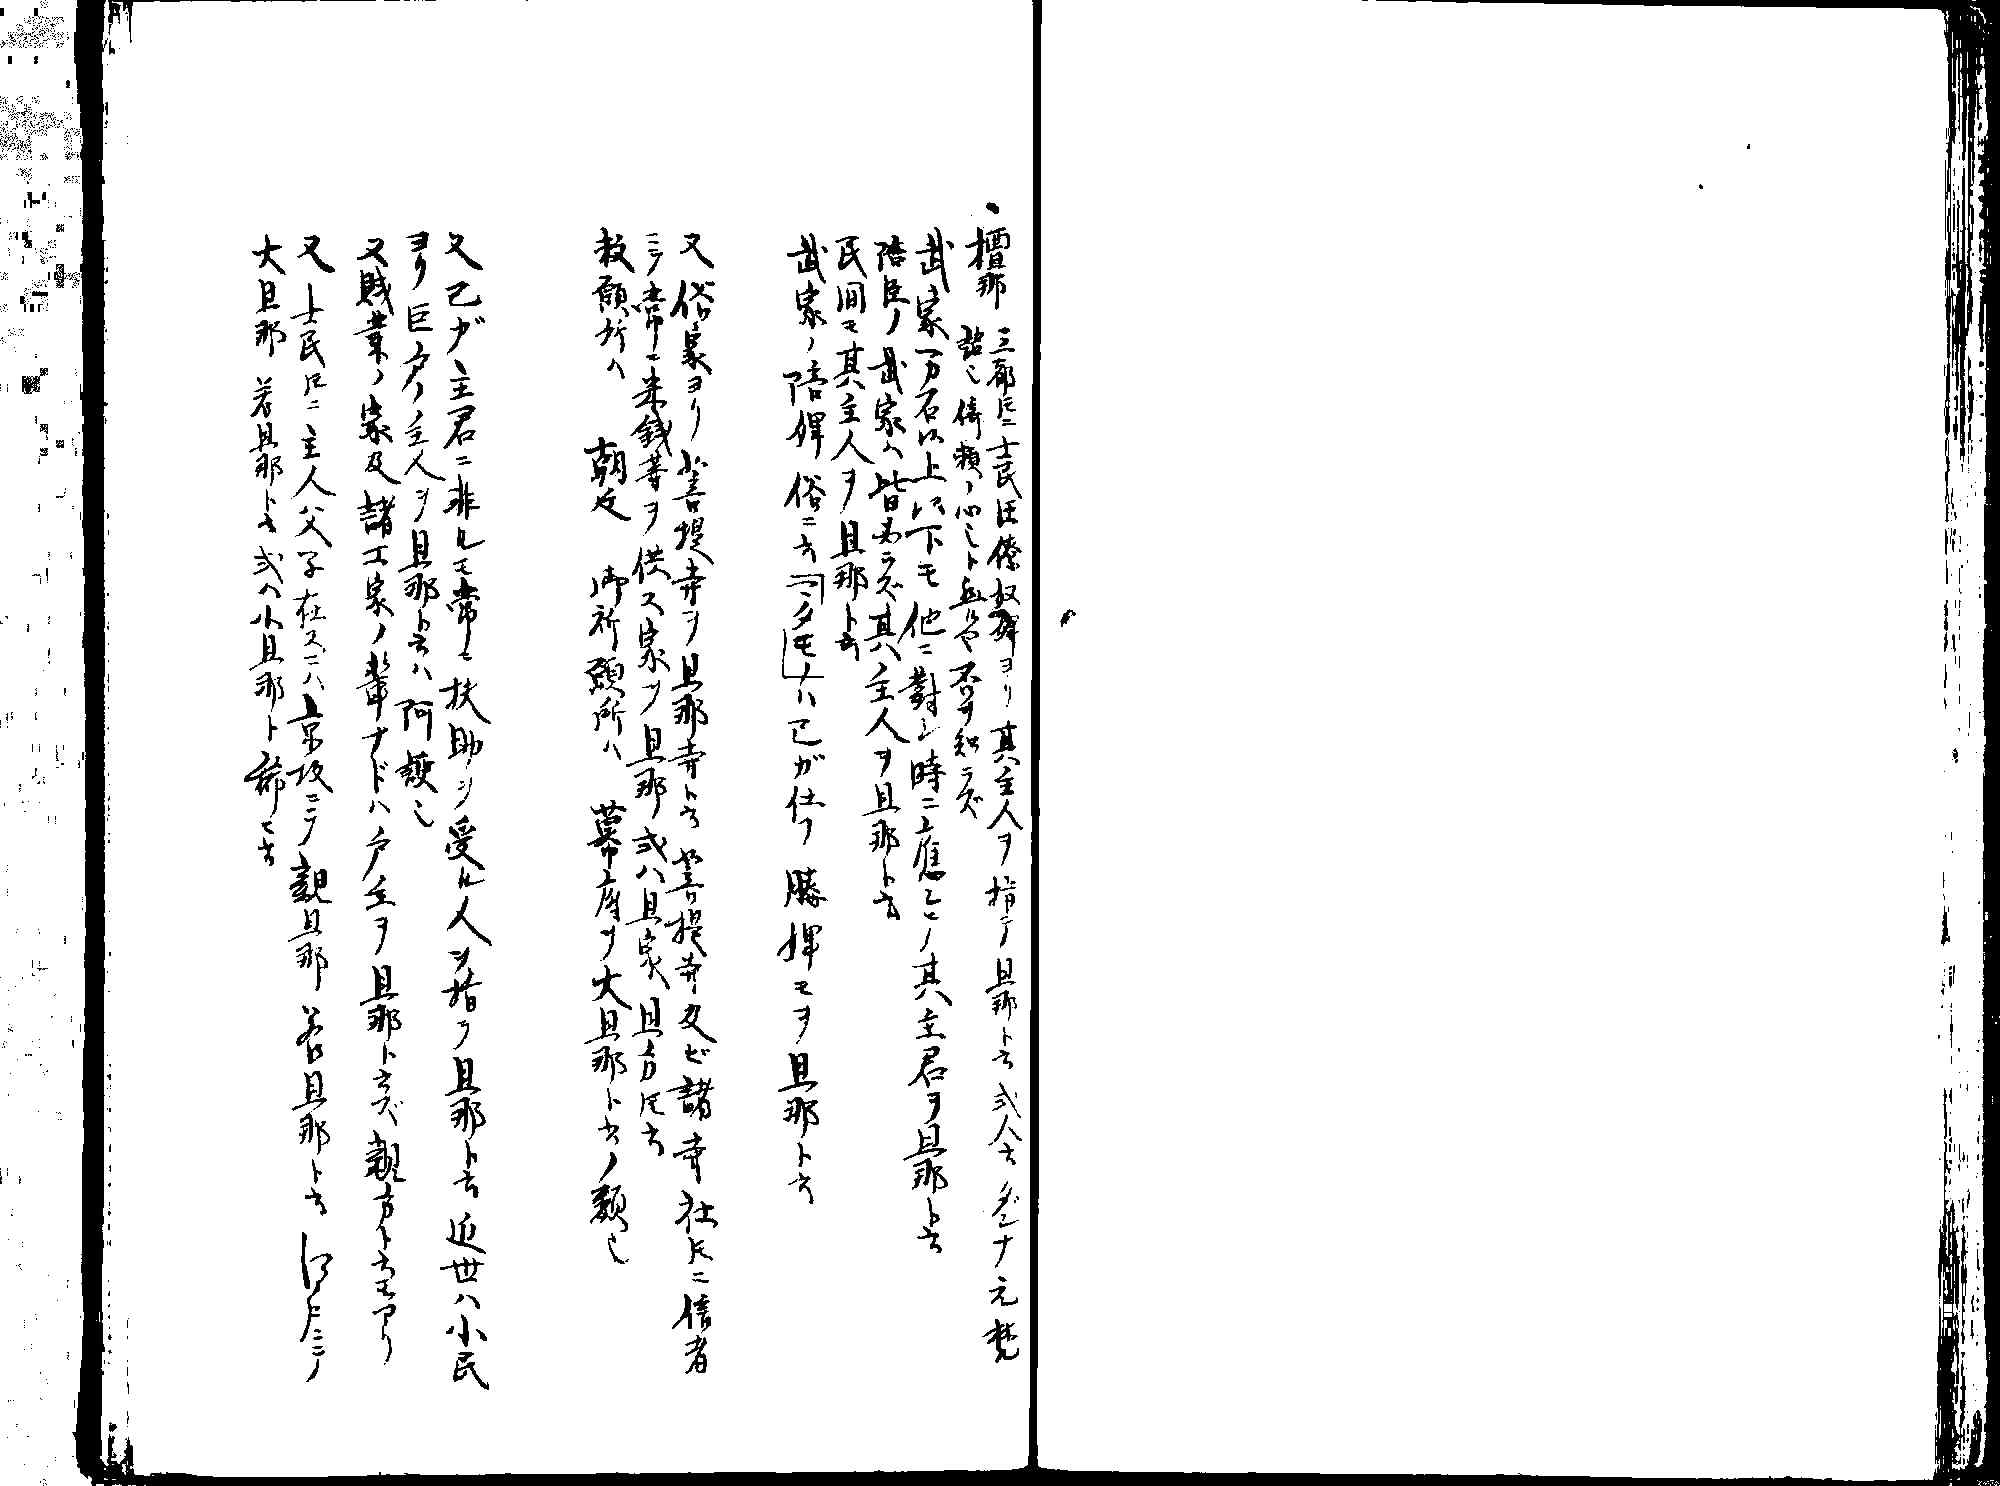 檀那 三都トモニ士民臣僚奴婢ヨリ其主人ヲ指テ旦那ト云或人云ダンナ元梵
語也倚頼ノ心也ト無ルヤ否ヲ知ラズ
武家一万石以上以下モ他ニ對シ時ニ應じノ其主君ヲ旦那ト云
陪臣ノ武家ハ皆必ラズ其主人ヲ旦那ト云
民間モ其主人ヲ旦那ト云
武家ノ陪婢俗ニ云マタモノハ己ガ仕フ勝婢モヲ旦那ト云
又俗家ヨリ菩提寺ヲ旦那寺ト云菩提寺及ビ諸寺社トモニ信者
ニテ常ニ米銭等ヲ供ス家ヲ旦那或ハ旦家旦方トモ云
敕願所ハ 朝廷 御祈願所ハ 幕府ヲ大旦那ト云ノ類也
又己ガ主君ニ非ルモ常ニ扶助ヲ受ル人ヲ指テ旦那ト云近世ハ小民
ヨリ巨戸ノ主人ヲ旦那ト云ハ阿諛也
又賎業ノ家及諸工家ノ輩ナドハ戸主ヲ旦那ト云ズ親方ト云モアリ
又士民トモニ主人父子在スニハ京坂ニテ親旦那若旦那ト云江戸ニテ
大旦那若旦那ト云或ハ小旦那ト称モ云